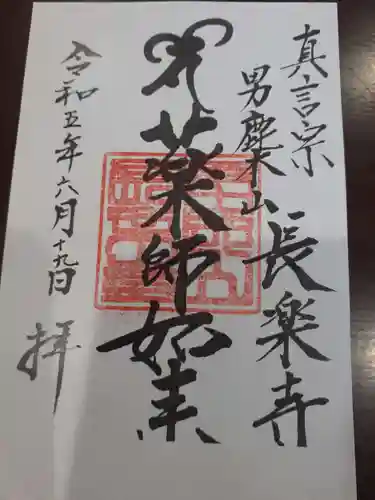 真言宗
男鹿本山
長楽寺
薬師如来
令和五年六月十九日
拝